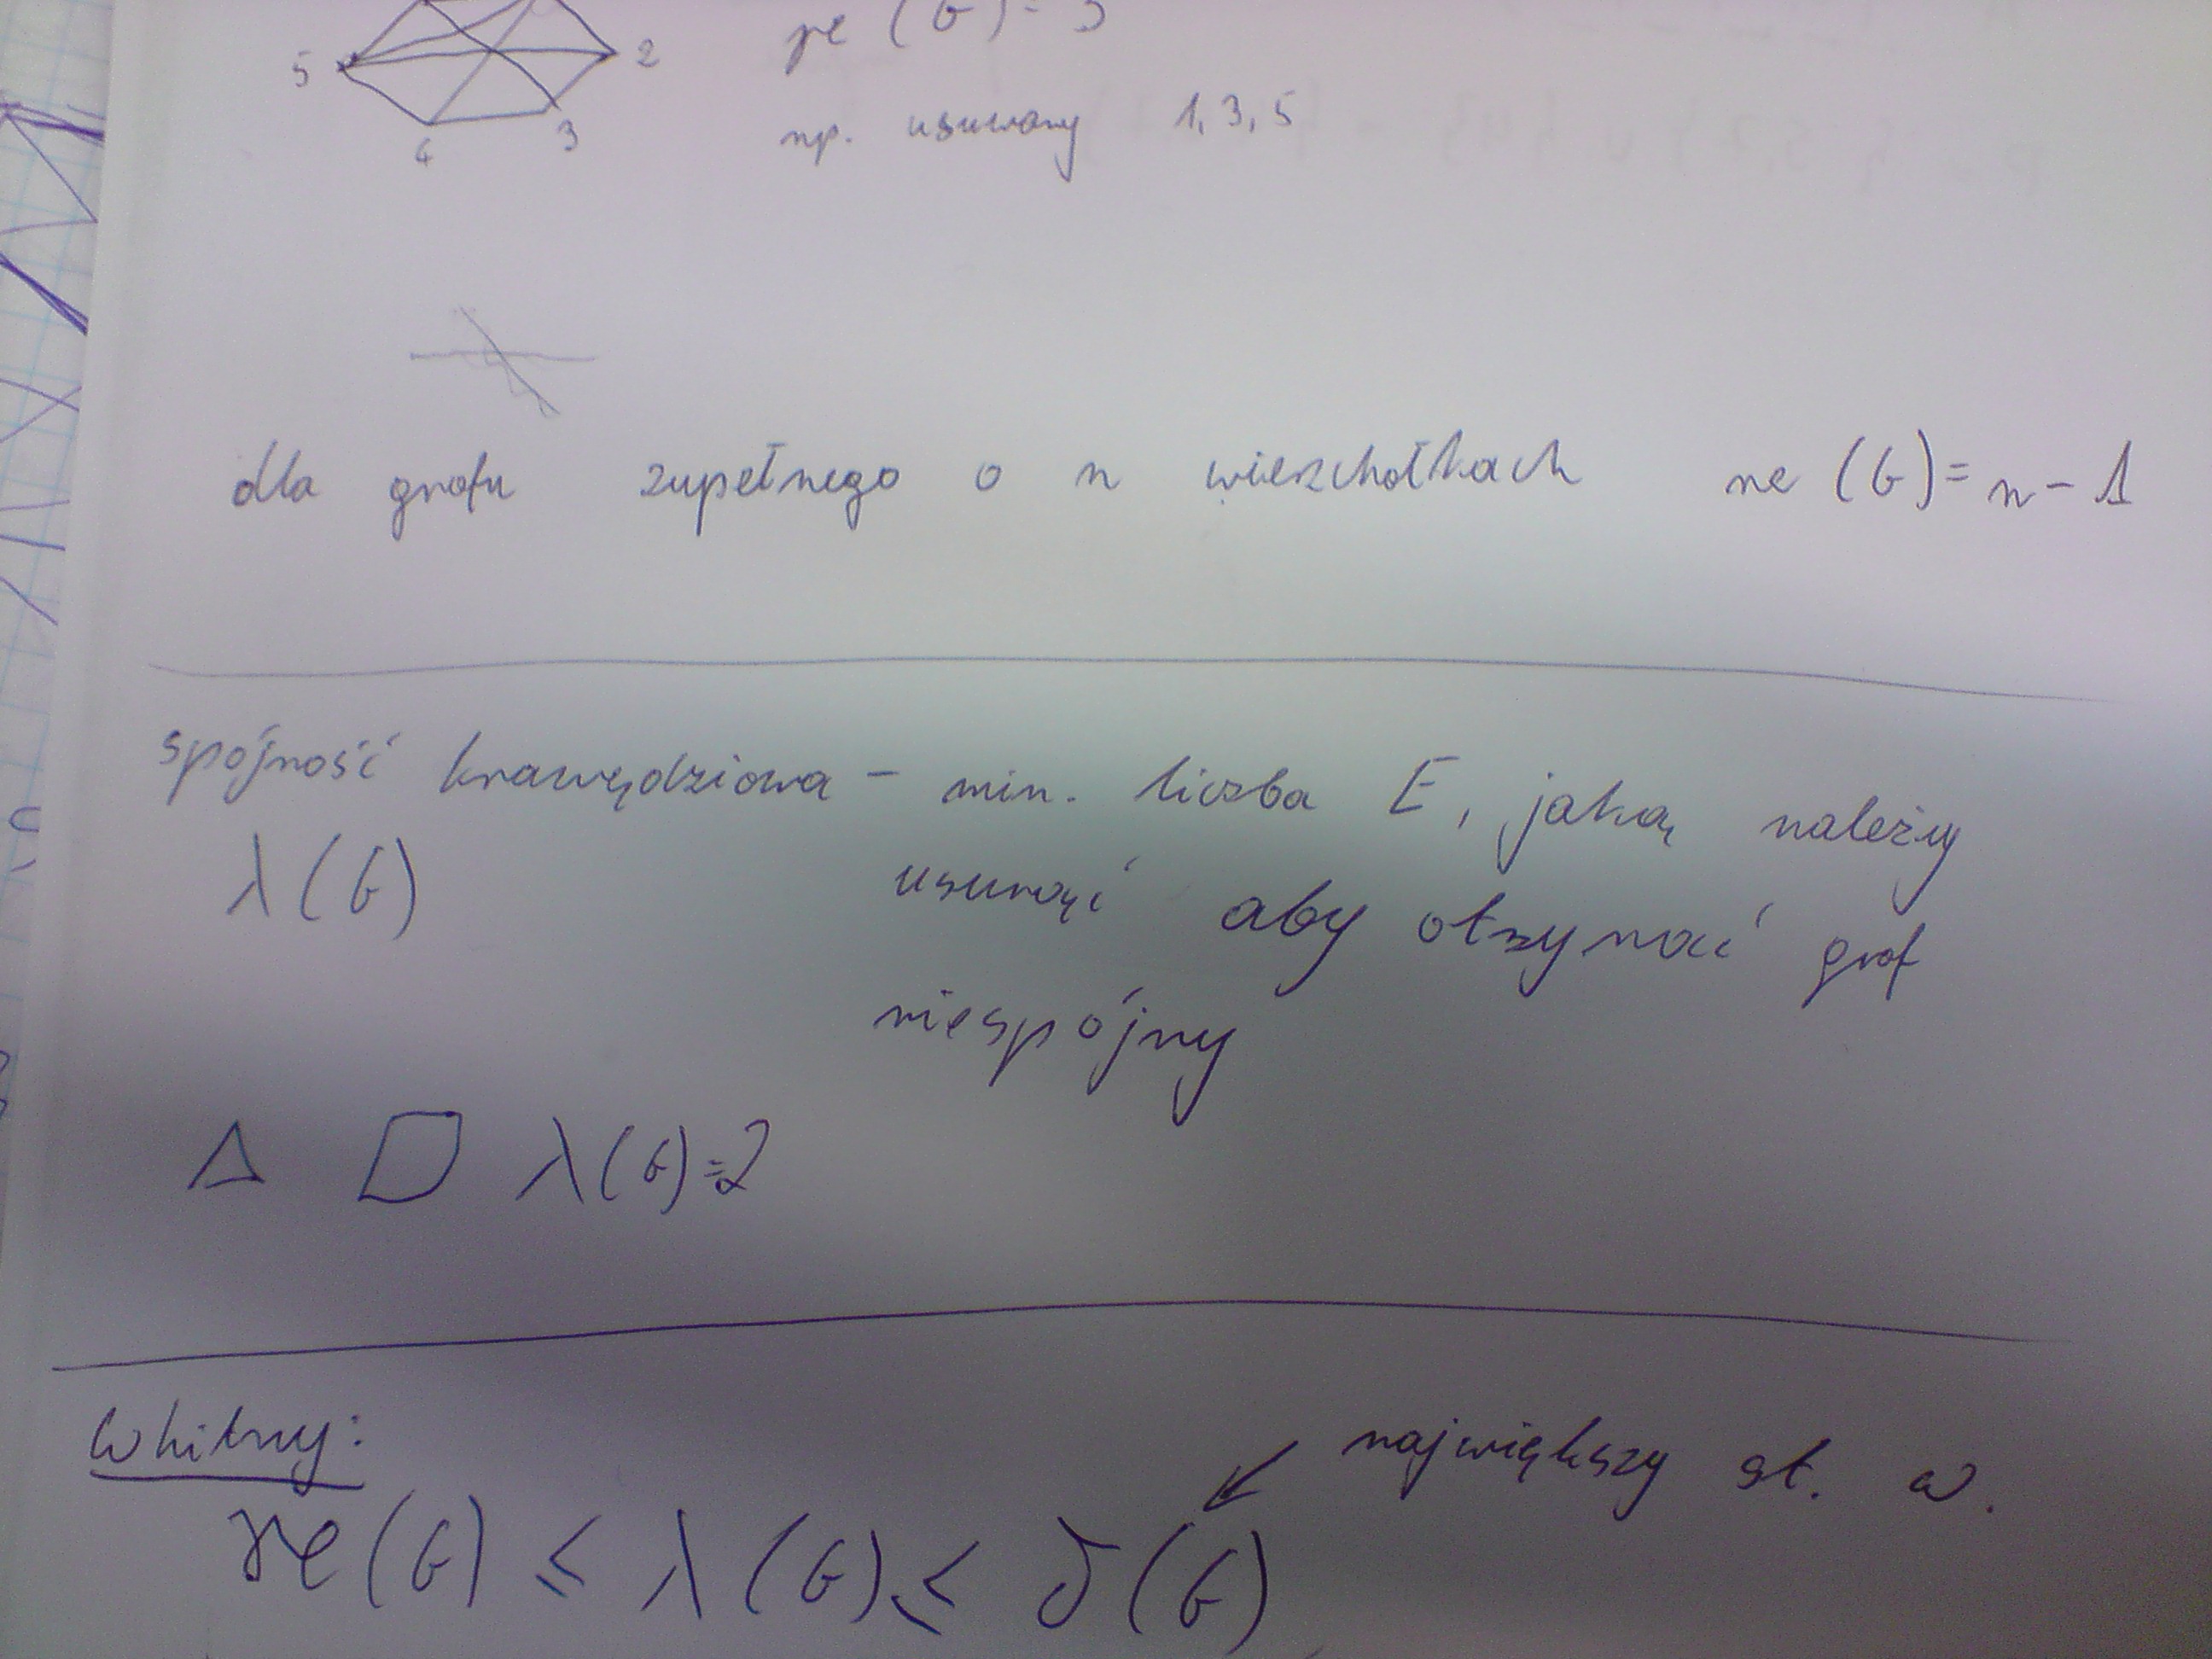 5 2 ϰ(G)=3
4 3 np. usuwamy 1, 3, 5
dla grafu zupełnego o n wierzchołkach ϰ(G)=n-1
spójność krawędziowa - min. liczba E, jaką należy
λ(G) usunąć aby otrzymać graf
niespójny
λ(G)=2
Whitny:
największy st. w.
ϰ(G) ≤ λ(G) ≤ δ(G)